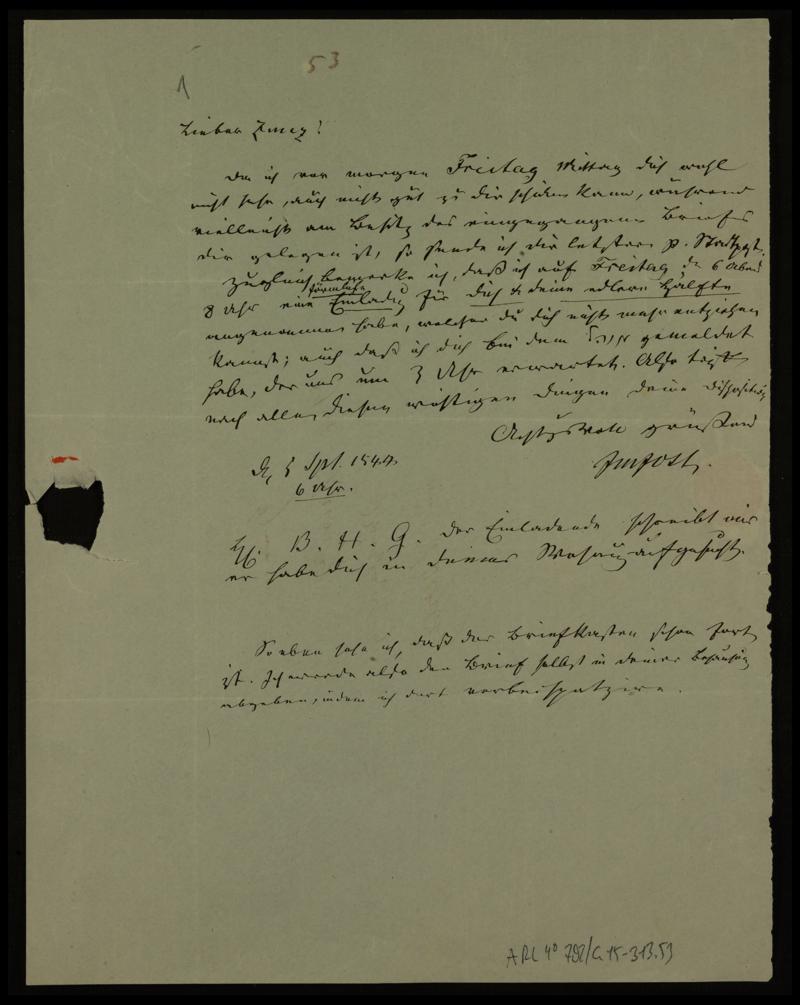 53
1
Lieber Zunz!
Da ich vor morgen Freitag Mittag dich wohl
nicht sehe, auch nicht gut zu dir schicken kann, während
vielleicht am Besitz des eingegangenen Briefes
dir gelegen ist, so sende ich dir letztern p. Stadtpost.
Zugleich bemerke ich, daß ich auf Freitag d. 6 Abend
8 Uhr eine förmliche Einladung für dich & deine edlere Hälfte
angenommen habe, welcher du dich nicht mehr entziehen
kannst; auch daß ich dich bei dem gemeldet
habe, der uns um 3 Uhr erwartet. Also
nach allen diesen wichtigen Dingen deine Disposition
Achtungsvoll grüßend
Jm Jost.
d. 5 Spt. 1844
6 Uhr.
H. B. H. G. der Einladende schreibt mir
er habe dich in deiner Wohnung aufgesucht.
Soeben sehe ich, daß der Briefkasten schon fort
ist. Ich werde also den Brief selbst in deiner Behausung
abgeben, indem ich dort vorbeispatzire.
ARC 4° 792/G15-313.53